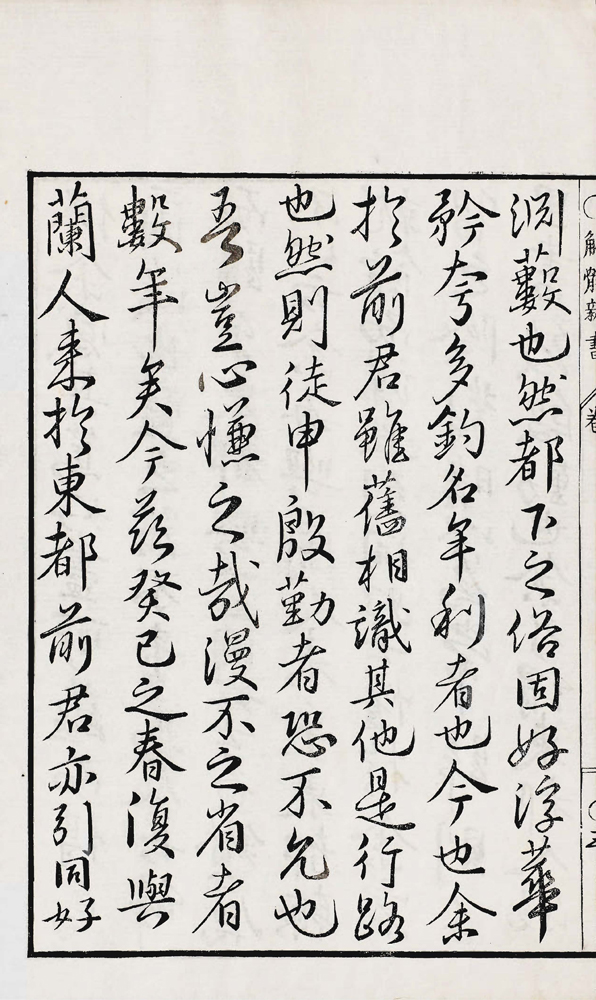 解體新書 卷
渕藪也然都下之俗固好浮華
矜夸多釣名牟利者也今也余
於前君雖舊相識其他是行路
也然則徒申殷勤者恐不允也
吾豈心慊之哉漫不之省者
數年矣今茲癸巳之春復與
蘭人来於東都前君亦引同好